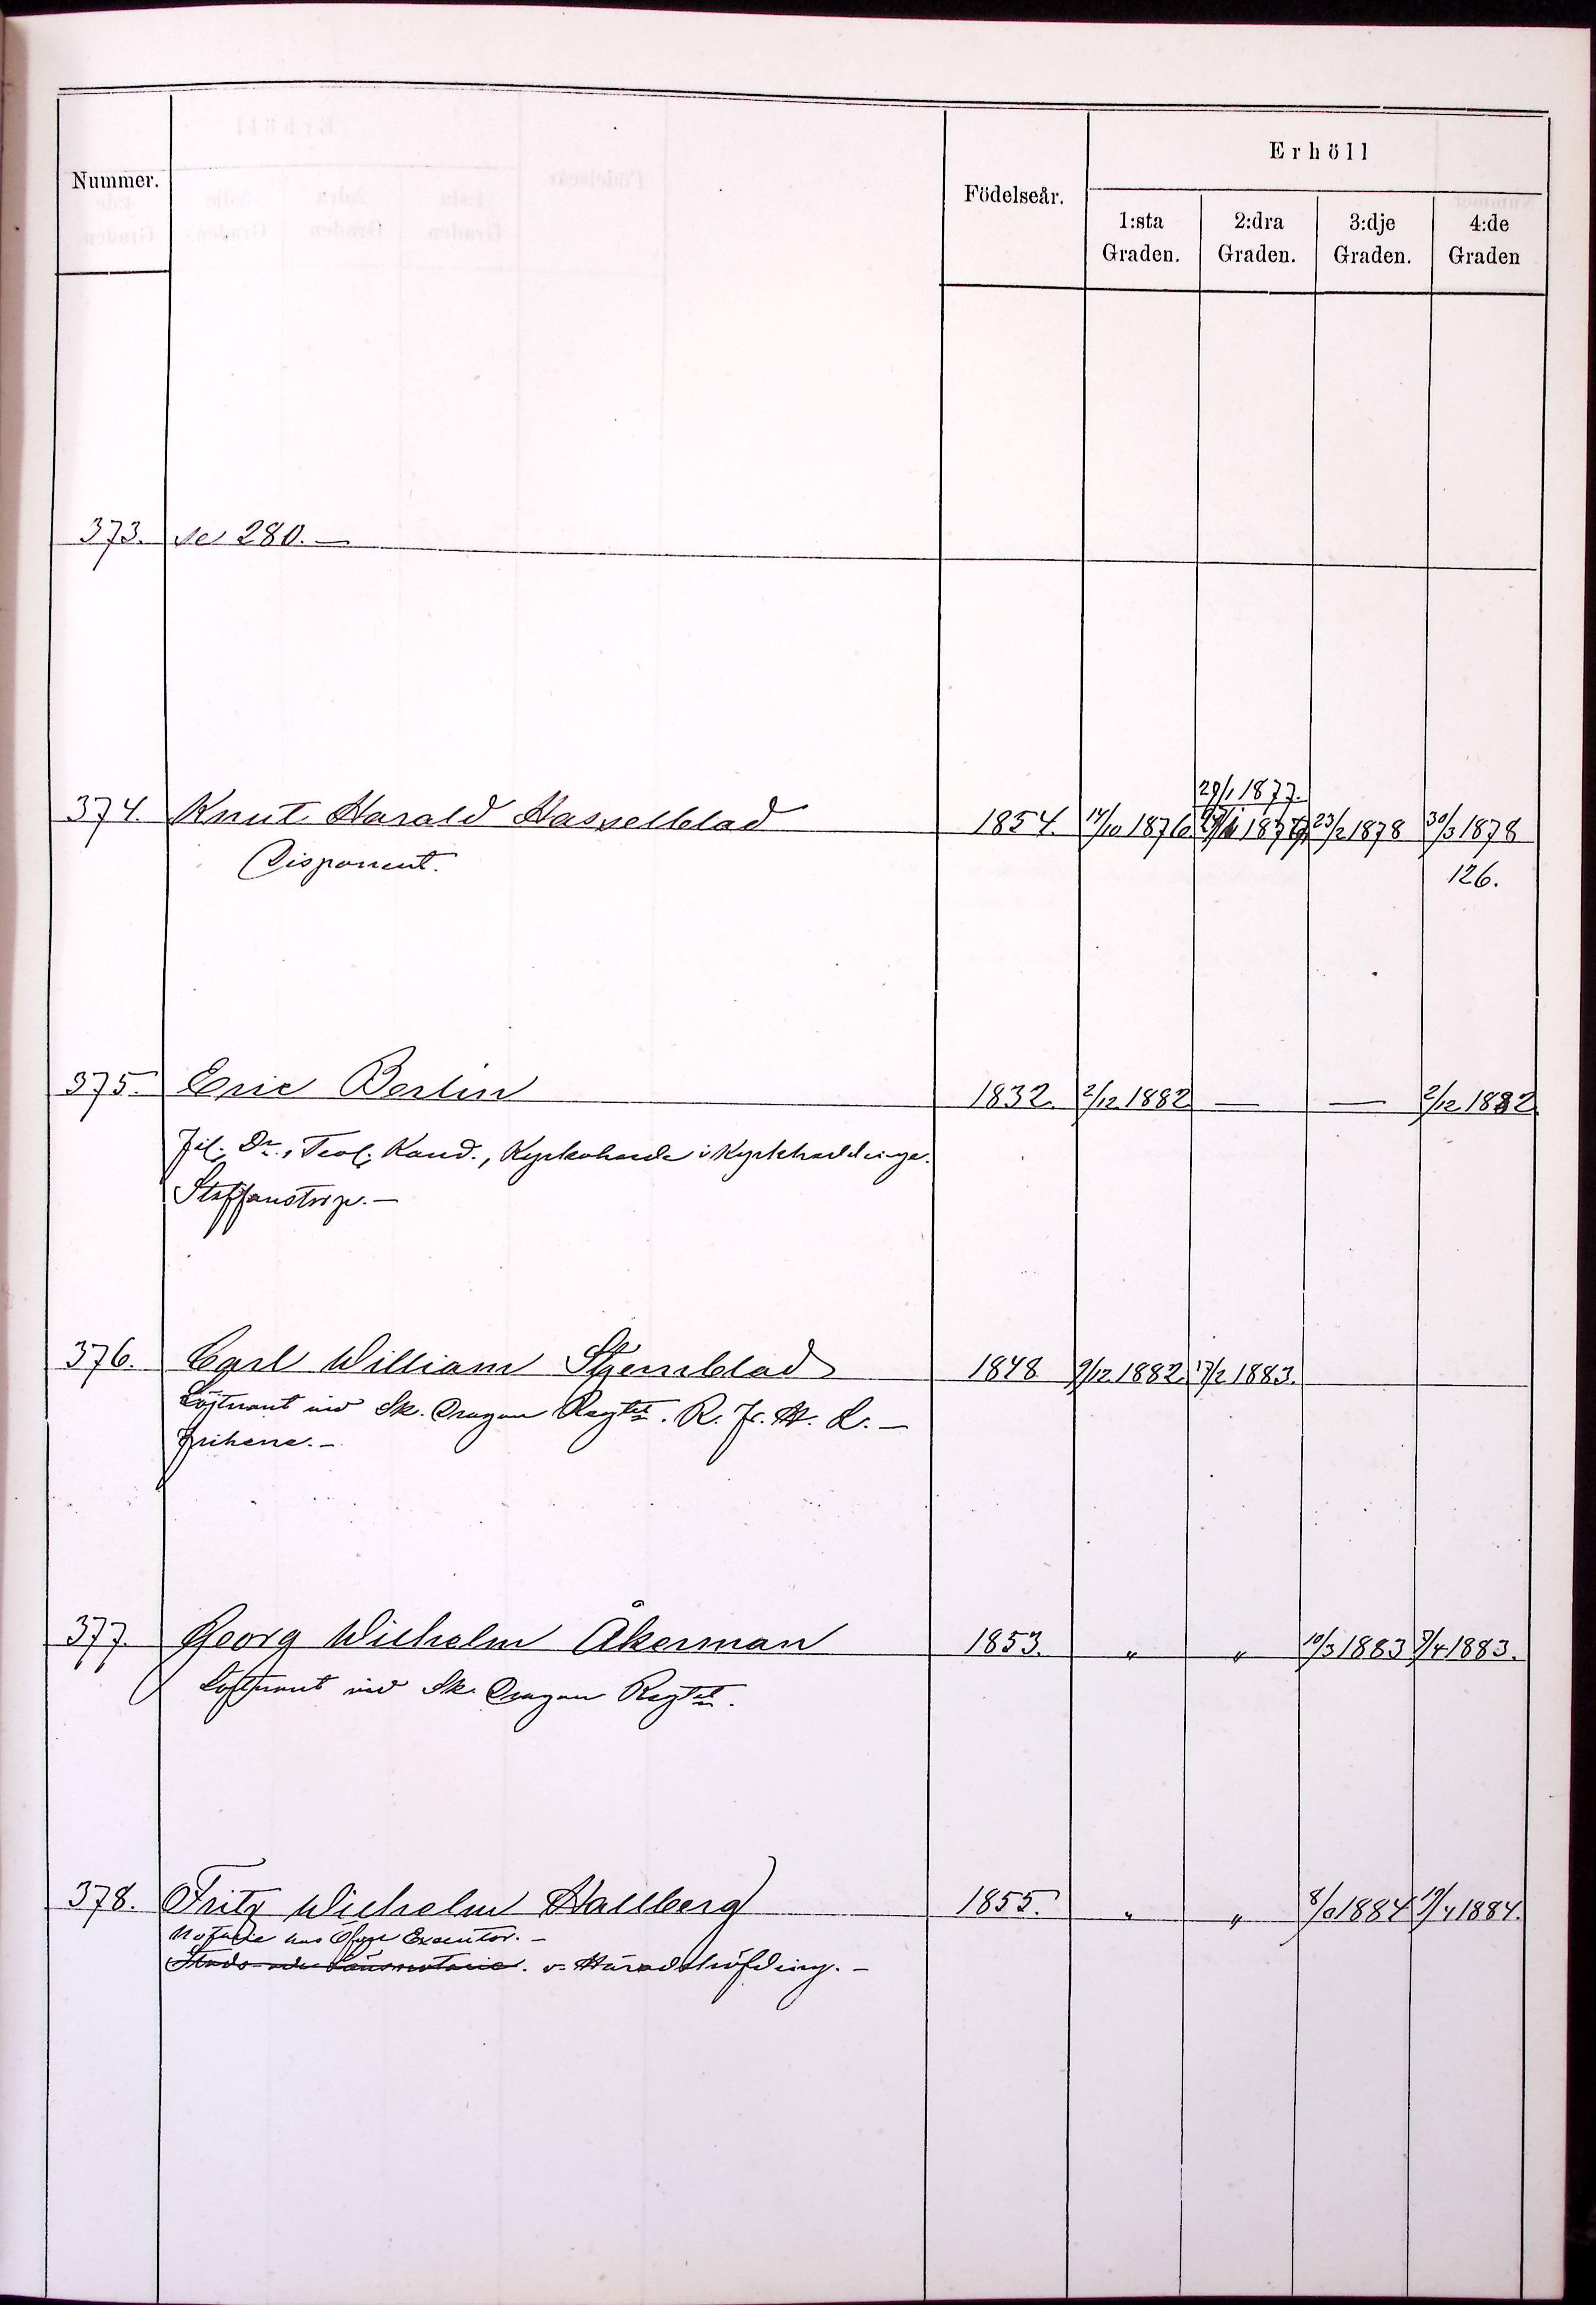 Erhöll
Nummer.
Födelseår.
1:sta Graden.
2:dra Graden.
3:dje Graden.
4:de Graden
373. se 280. —
29/1 1877.
374. Knut Harald Hasselblad 1854. 14/10 1876 1877 23/2 1878 30/3 1878
Disponent. 126.
375. Eric Berlin 1832. 2/12 1882 — — 2/12 1882
Fil. Dr., Teol. Kand., Kyrkoherde i Kyrkheddinge.
Staffanstorp. —
376. Carl William Stjernblad 1848 9/12 1882. 17/2 1883.
Löjtnant vid Sk. Dragon Regtet. R. —
Friherre. —
377. Georg Wilhelm Åkerman 1853. " " 10/3 1883 7/4 1883.
Löjtnant vid Sk. Dragon Regtet.
378. Fritz Wilhelm Hallberg 1855. " " 1884 19/4 1884.
Notarie hos Öfver Executor. —
Stads- Länsnotarie. v. Häradshöfding. —